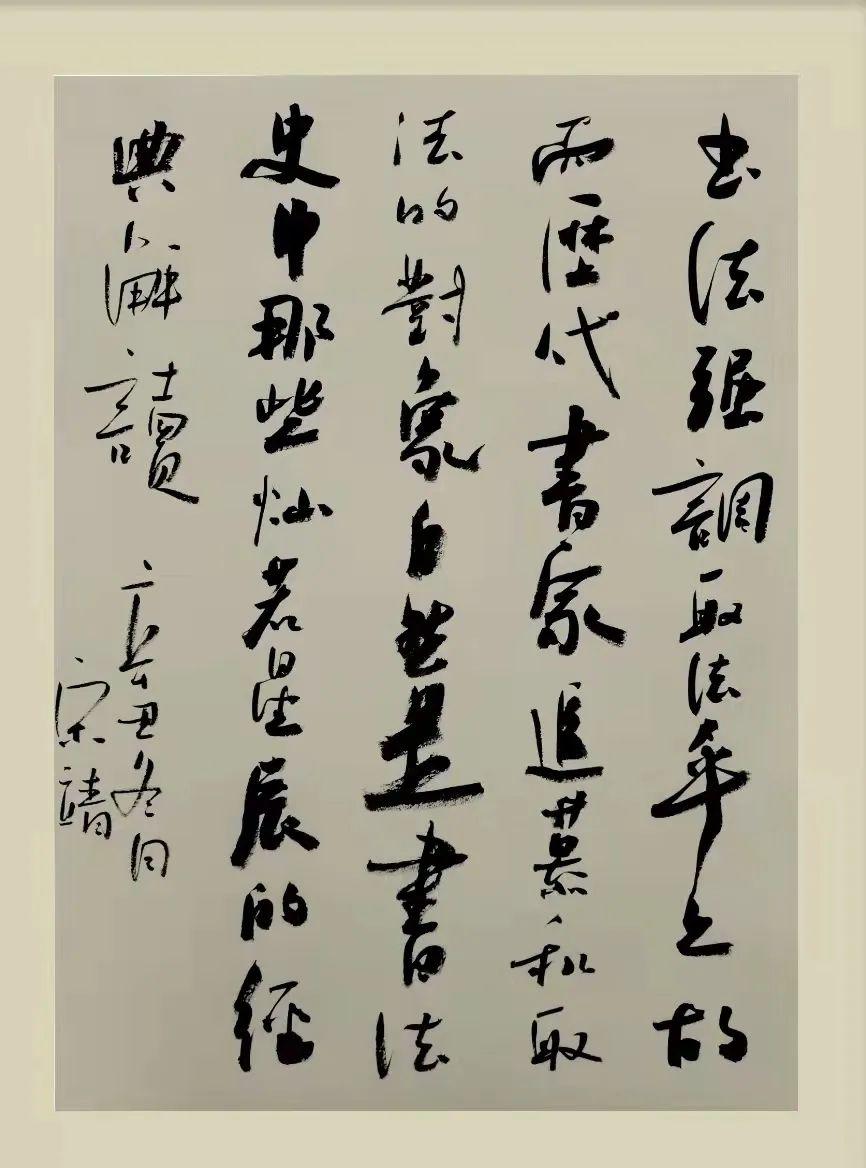 书法强調取法乎上故
而歷代書家追慕和取
法的對象自然是書法
史中那些灿若星辰的經
典解讀 辛丑冬月
宋靖